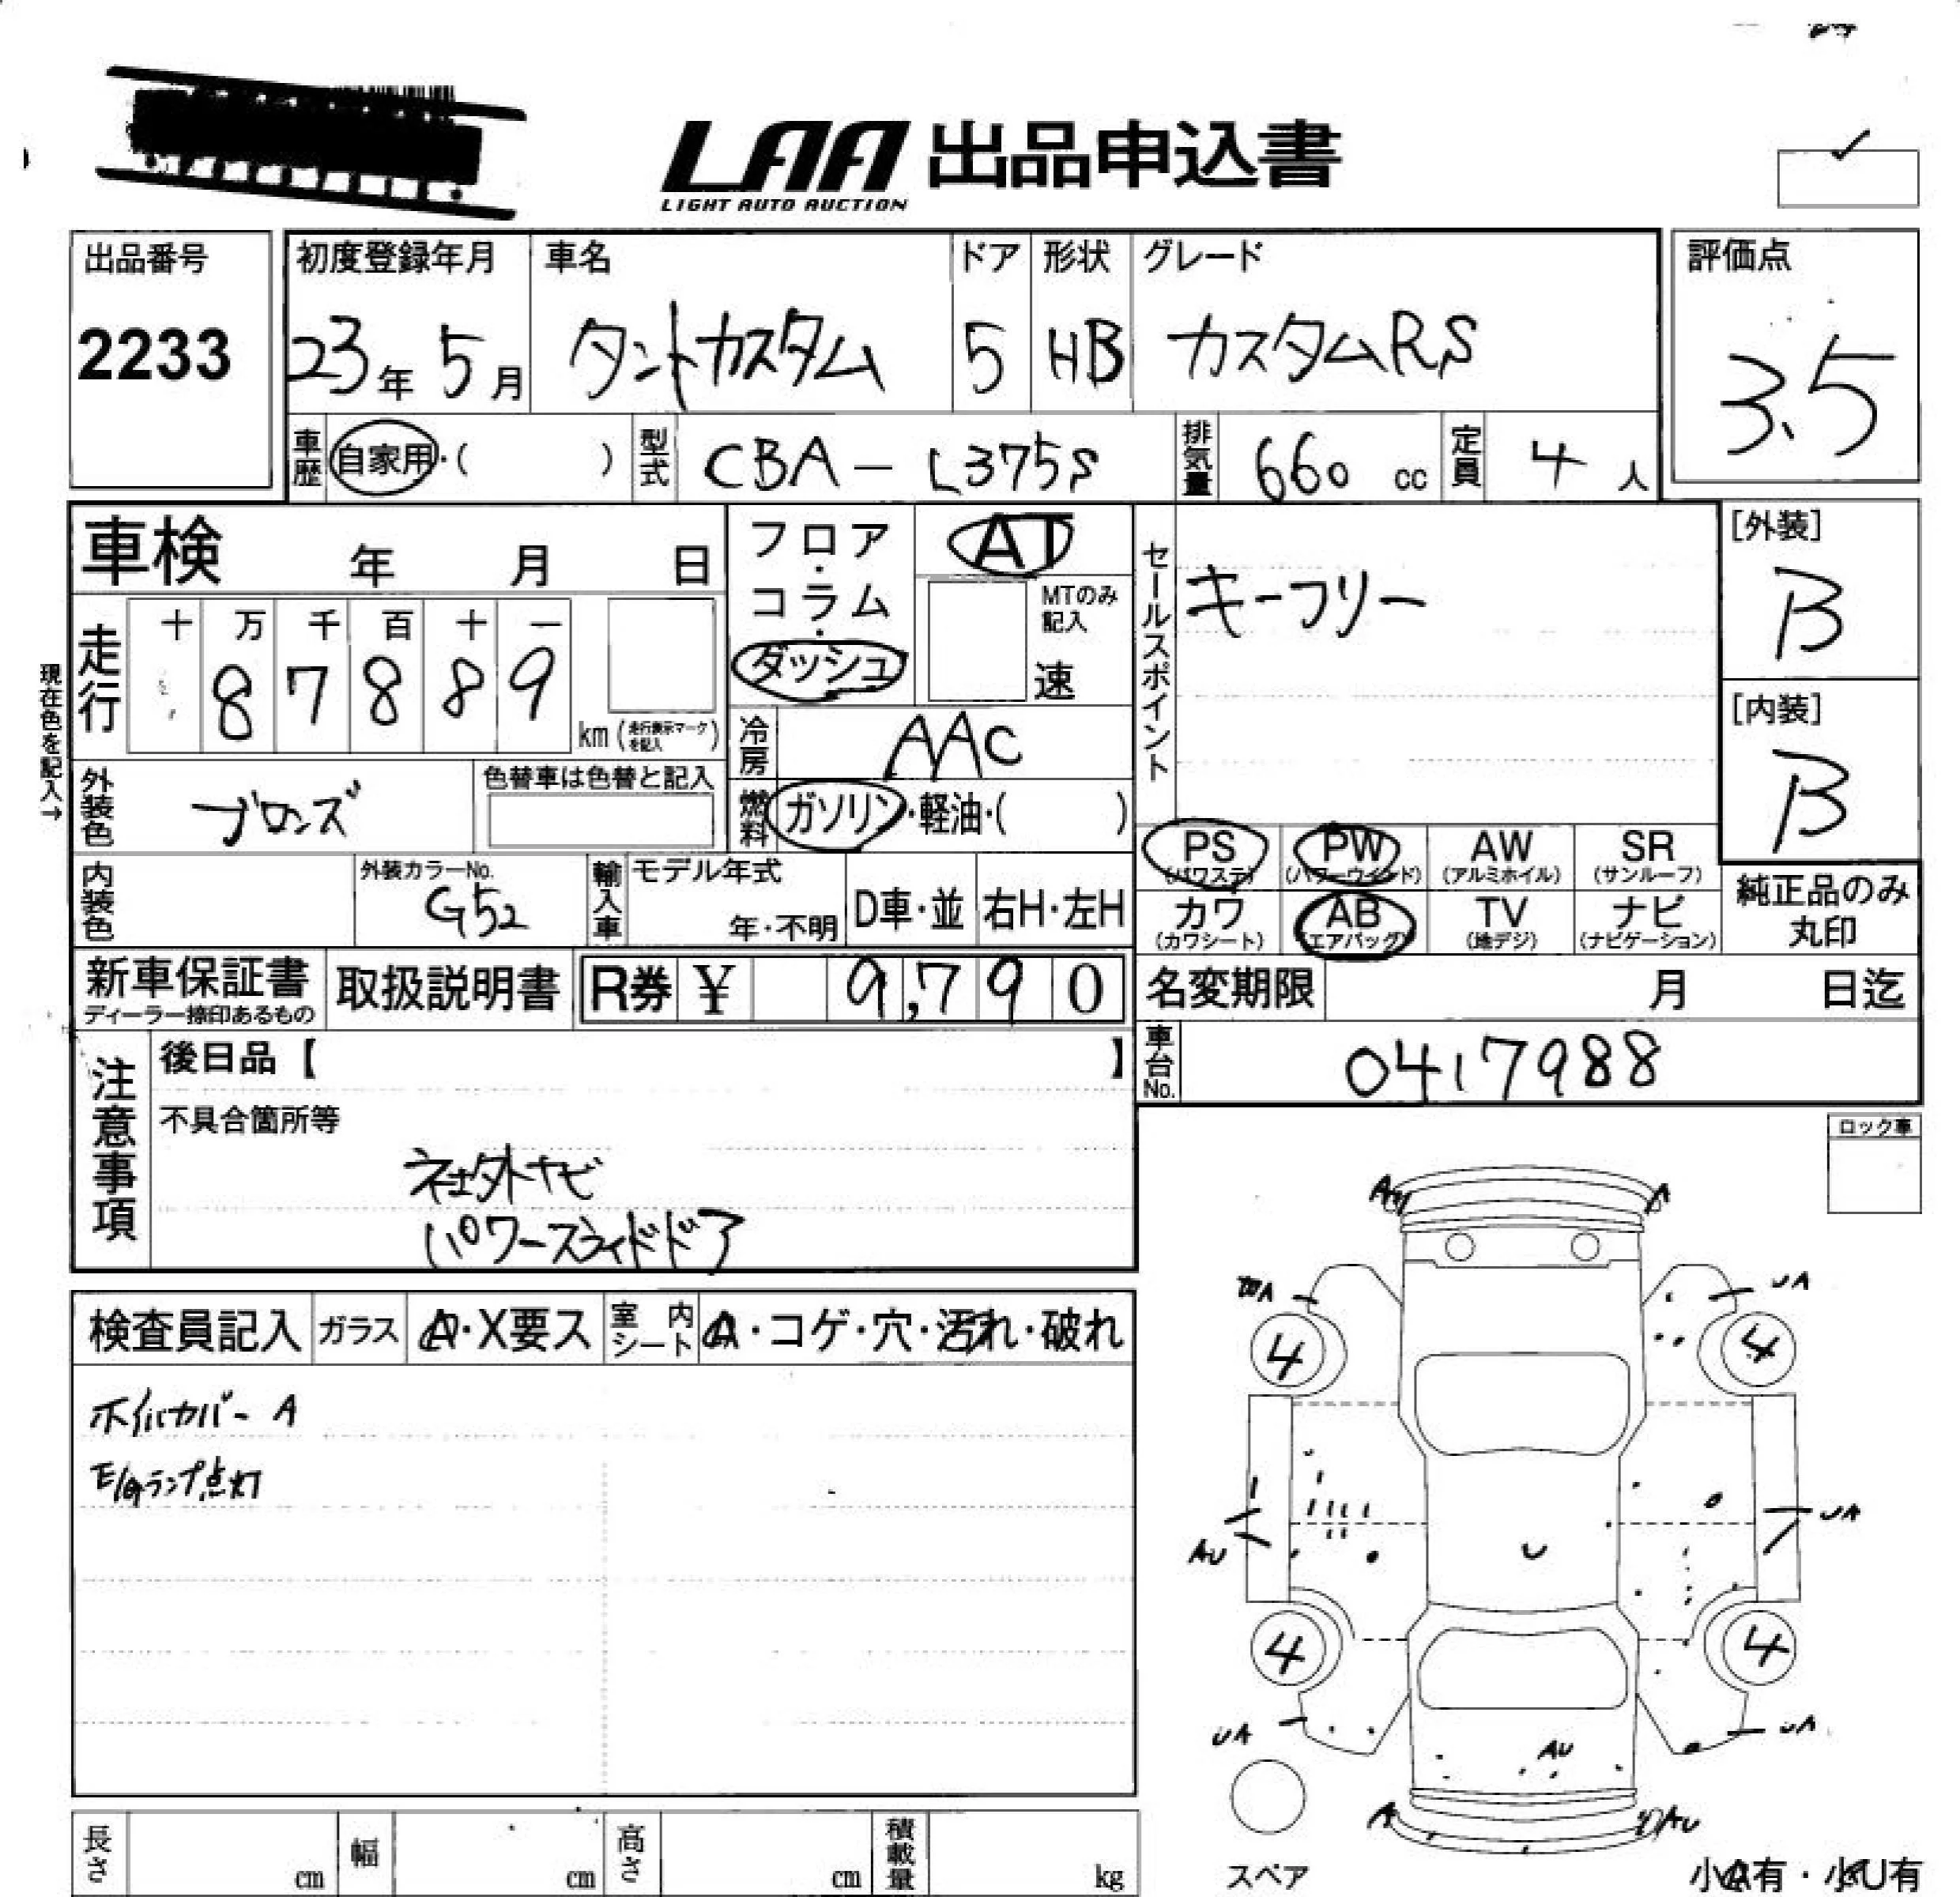 LAA 出品申込書
LIGHT AUTO AUCTION
出品番号
2233
初度登録年月
23年 5月
車名
タントカスタム
ドア
5
形状
HB
グレード
カスタムRS
評価点
3.5
車歴 自家用・( )
型式 CBA-L375S
排気量 660 cc
定員 4 人
車検 年 月 日
走行
十 万 千 百 十 一
8 7 8 8 9
km(走行表示マークを記入)
現在色を記入→
フロア・コラム・ダッシュ
AT
MTのみ記入
速
冷房 AAC
燃料 ガソリン・軽油・( )
セールスポイント
キーフリー
[外装]
B
[内装]
B
外装色 ブロンズ
色替車は色替と記入
内装色
外装カラーNo.
G52
輸入車
モデル年式
年・不明
D車・並
右H・左H
PS
(パワステ)
PW
(パワーウインド)
AW
(アルミホイル)
SR
(サンルーフ)
カワ
(カワシート)
AB
(エアバッグ)
TV
(地デジ)
ナビ
(ナビゲーション)
純正品のみ
丸印
新車保証書
ディーラー捺印あるもの
取扱説明書
R券 ¥ 9,790
名変期限 月 日迄
車台No. 0417988
注意事項
後日品【 】
不具合箇所等
社外ナビ
パワースライドドア
ロック車
検査員記入
ガラス A・X要ス
室内シート A・コゲ・穴・汚れ・破れ
ホイルカバーA
E/Gランプ点灯
A
UA
4
4
UA
AU
U
4
4
UA
UA
AU
A
AU
スペア
小A有・小U有
長さ cm
幅 cm
高さ cm
積載量 kg